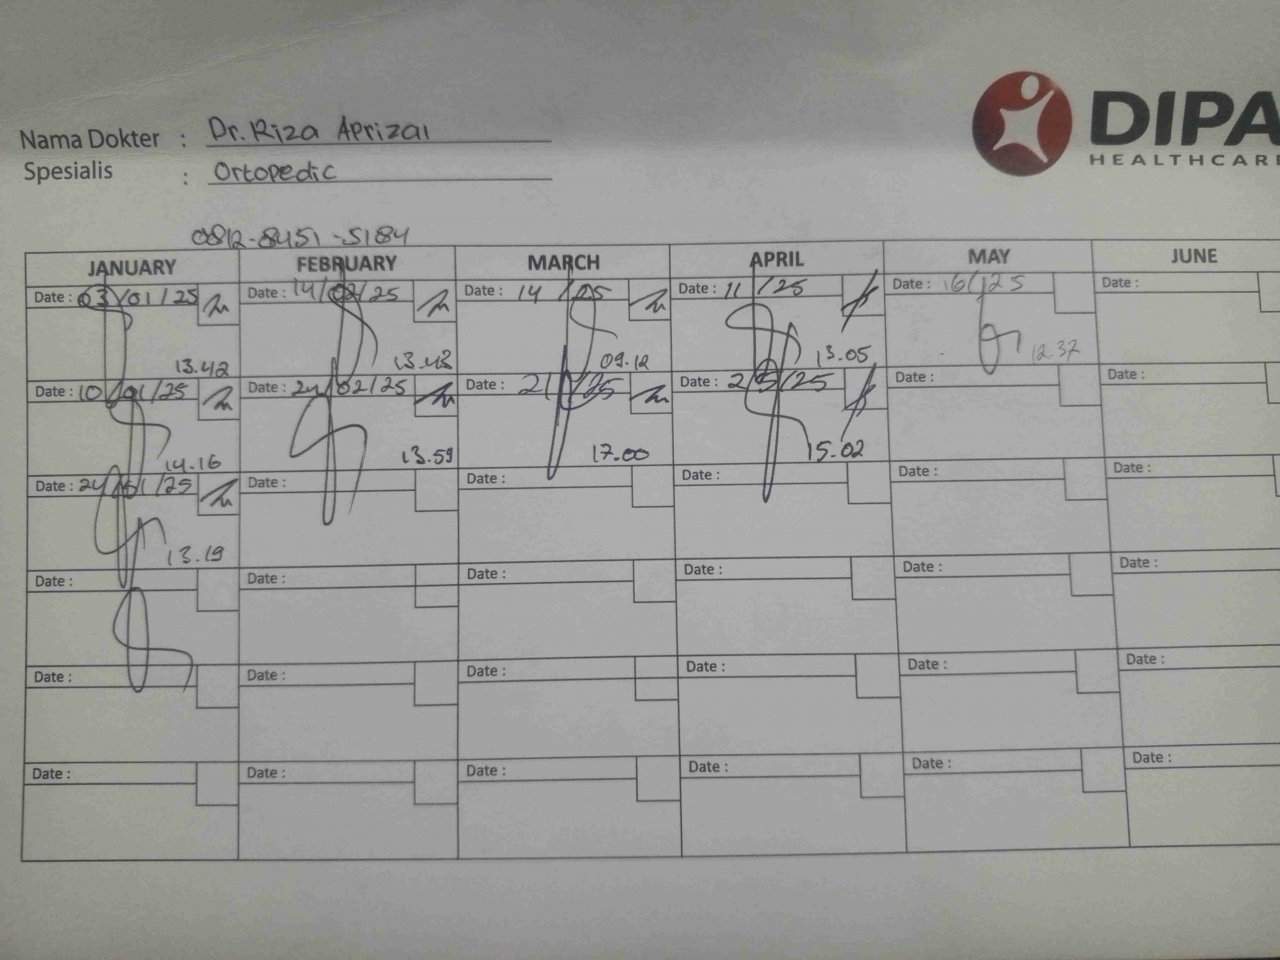 DIPA
HEALTHCARE
Nama Dokter : Dr. Riza Aprizal
Spesialis : Ortopedic
0812-8451-5184
JANUARY FEBRUARY MARCH APRIL MAY JUNE
Date : 03/01/25 Date : 14/02/25 Date : 14 /25 Date : 11 /25 Date : 16/ /25 Date :
13.42 13.43 09.12 13.05 12.37
Date : 10/01/25 Date : 24/02/25 Date : 21/ /25 Date : 2/5/25 Date : Date :
14.16 13.59 17.00 15.02
Date : 24/01/25 Date : Date : Date : Date : Date :
13.19
Date : Date : Date : Date : Date : Date :
Date : Date : Date : Date : Date : Date :
Date : Date : Date : Date : Date : Date :